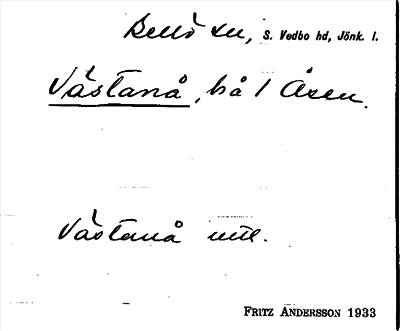 Bellö sn, S. Vedbo hd, Jönk. l.
Västanå, bå / Åsen.
Västanå mtl.
FRITZ ANDERSSON 1933